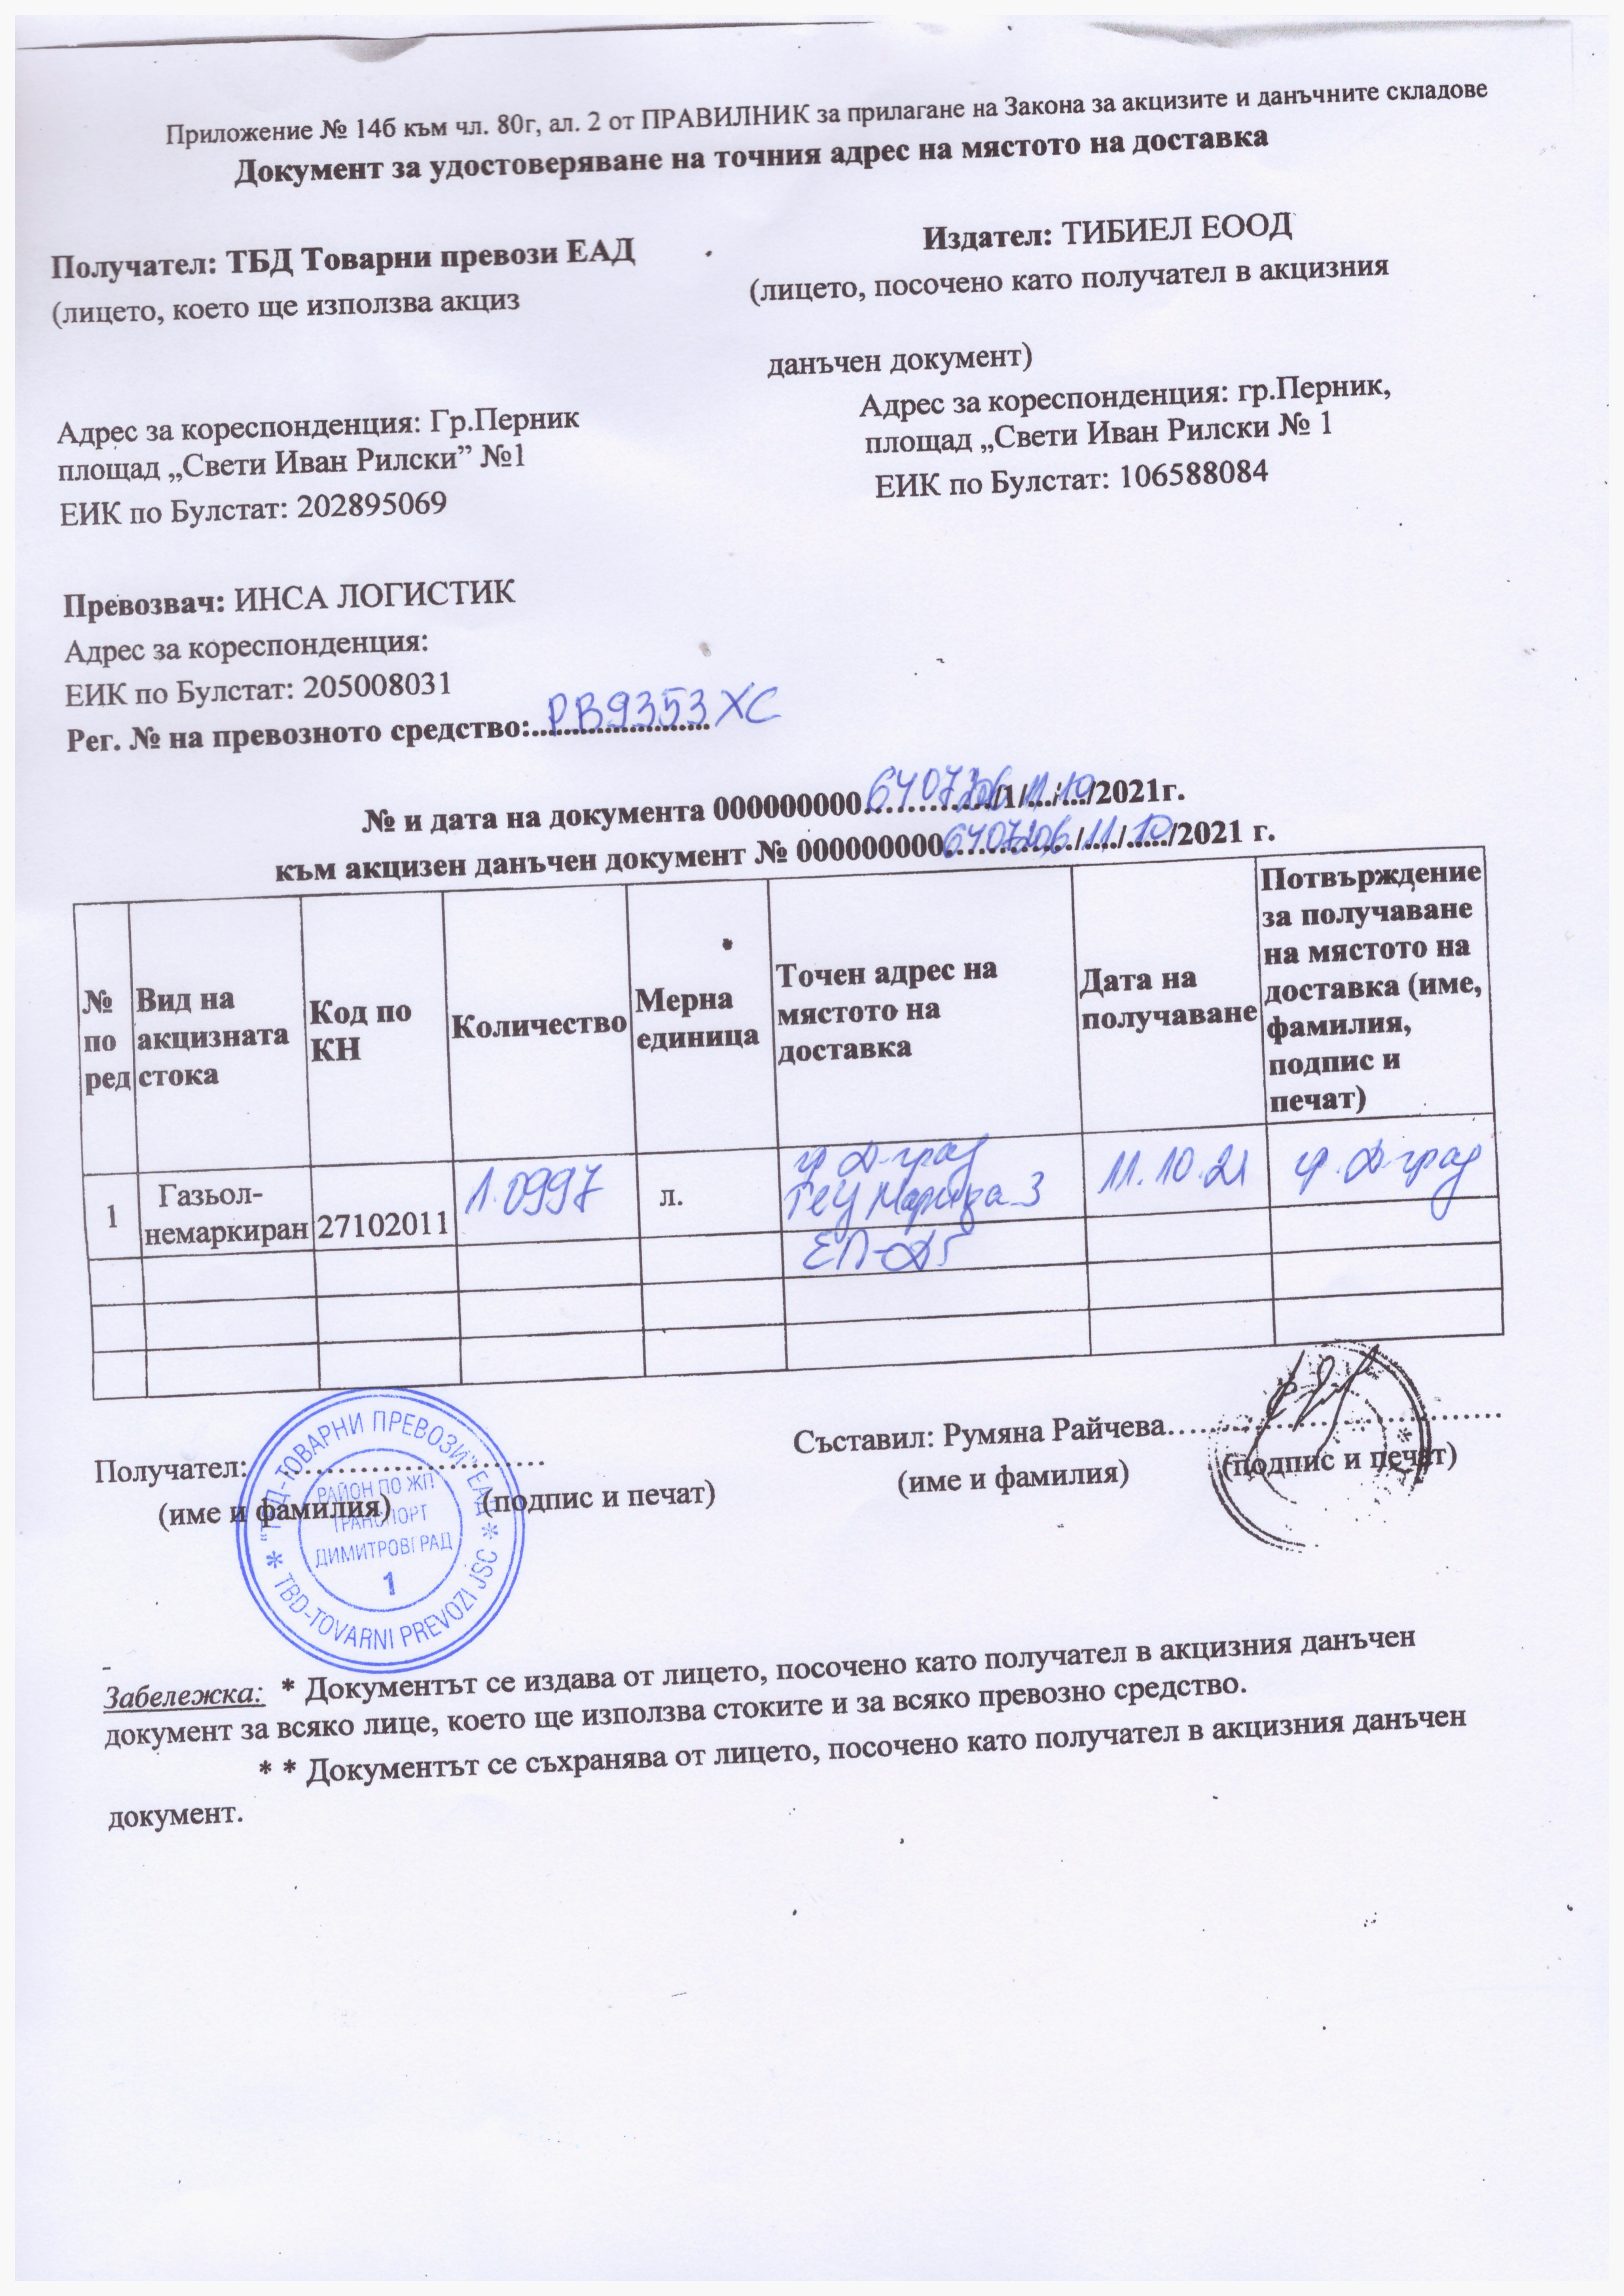 Приложение № 14б към чл. 80г, ал. 2 от ПРАВИЛНИК за прилагане на Закона за акцизите и данъчните складове
Документ за удостоверяване на точния адрес на мястото на доставка
Получател: ТБД Товарни превози ЕАД
(лицето, което ще използва акциз
Издател: ТИБИЕЛ ЕООД
(лицето, посочено като получател в акцизния
данъчен документ)
Адрес за кореспонденция: Гр.Перник
площад „Свети Иван Рилски” №1
ЕИК по Булстат: 202895069
Адрес за кореспонденция: гр.Перник,
площад „Свети Иван Рилски № 1
ЕИК по Булстат: 106588084
Превозвач: ИНСА ЛОГИСТИК
Адрес за кореспонденция:
ЕИК по Булстат: 205008031
Рег. № на превозното средство:.......РВ9353ХС
№ и дата на документа 000000000............/1/11/10/2021г.
към акцизен данъчен документ № 000000000............/11/10/2021 г.
№ по ред
Вид на акцизната стока
Код по КН
Количество
Мерна единица
Точен адрес на мястото на доставка
Дата на получаване
Потвърждение за получаване на мястото на доставка (име, фамилия, подпис и печат)
1
Газьол-немаркиран
27102011
1.0997
л.
гр Д-град
ТЕЦ Марица 3
ЕП-ДГ
11.10.21
гр. Д-град
Получател:..............................
(име и фамилия) (подпис и печат)
Съставил: Румяна Райчева..............................
(име и фамилия) (подпис и печат)
"ТБД-ТОВАРНИ ПРЕВОЗИ" ЕАД
РАЙОН ПО ЖП
ТРАНСПОРТ
ДИМИТРОВГРАД
1
* TBD-TOVARNI PREVOZI JSC *
Забележка: * Документът се издава от лицето, посочено като получател в акцизния данъчен
документ за всяко лице, което ще използва стоките и за всяко превозно средство.
* * Документът се съхранява от лицето, посочено като получател в акцизния данъчен
документ.